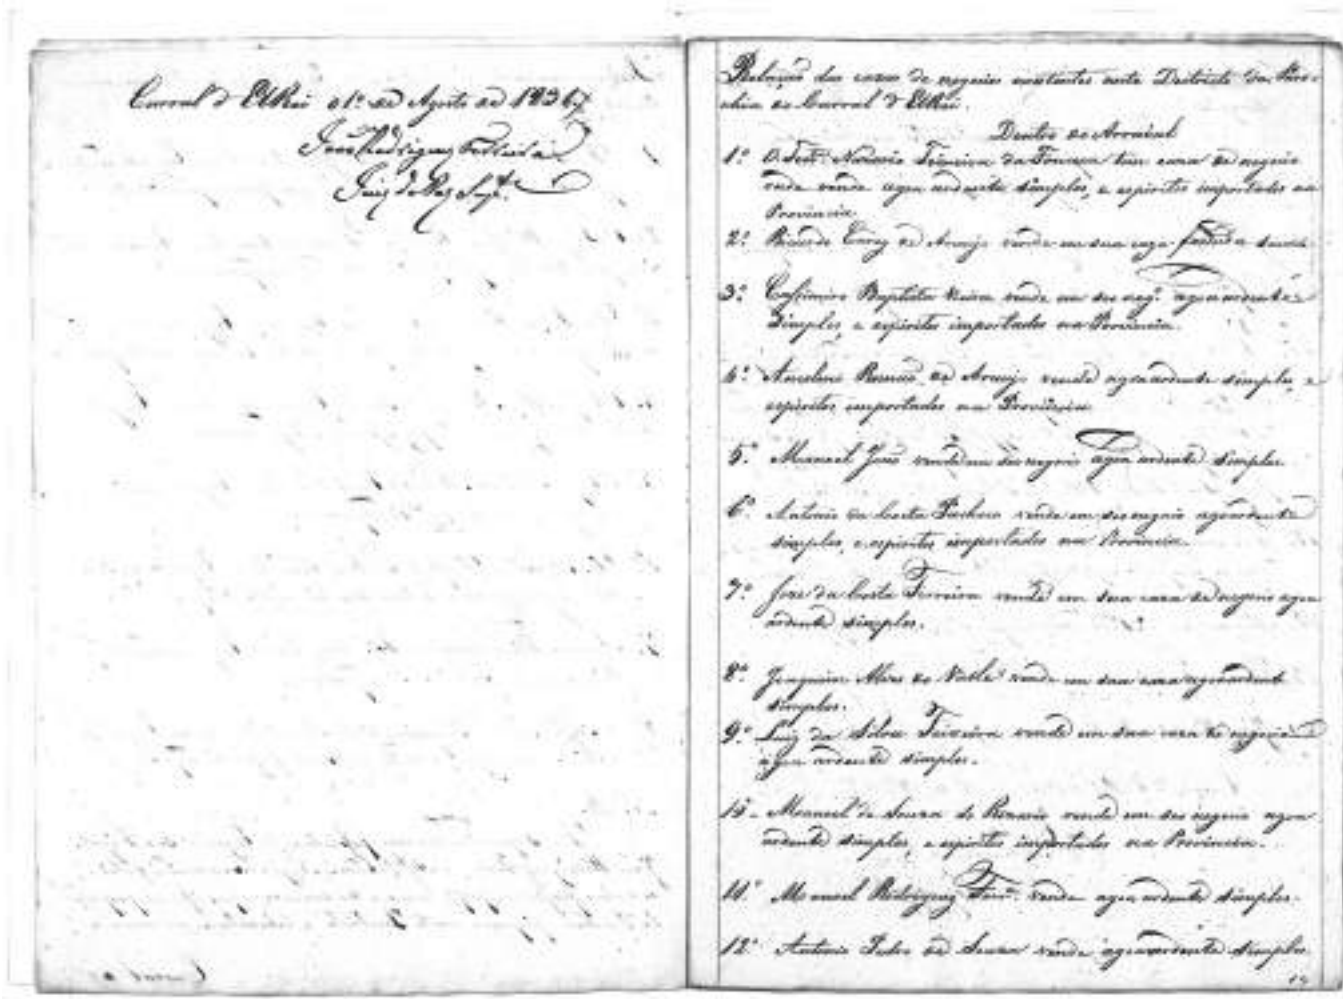 Curral d'ElRei 1º de Agosto de 1836
José Rodrigues
Juiz de Paz Supte
Relação das cazas de negocio existentes neste Destricto da Paro-
chia do Curral d'ElRei.
Dentro do Arraial
1º O Tente Teixeira da Fonseca tem caza de negocio
onde vende agoa ardente simples, e espiritos importados na
Provincia.
2º de Araujo vende em sua caza fazenda
3º Casimiro Baptista Vieira vende em seo nego agoa ardente
simples, e espiritos importados na Provincia.
4º Romão de Araujo vende agoa ardente simples, e
espiritos importados na Provincia
5º Manoel João vende em seo negocio agoa ardente simples
6º Antonio da Costa Pacheco vende em seo negocio agoa ardente
simples, e espiritos importados na Provincia.
7º Jose da Costa Ferreira vende em sua caza de negocio agoa
ardente simples.
8º Joaquim Alves do Valle vende em sua caza agoa ardente
simples.
9º Luiz da Silva Teixeira vende em sua caza de negocio
agoa ardente simples.
10 Manoel de Souza do Rozario vende em seo negocio agoa
ardente simples, e espiritos importados na Provincia.
11º Manoel Rodrigues vende agoa ardente simples.
12º Antonio Pedro de Souza vende agoa ardente simples